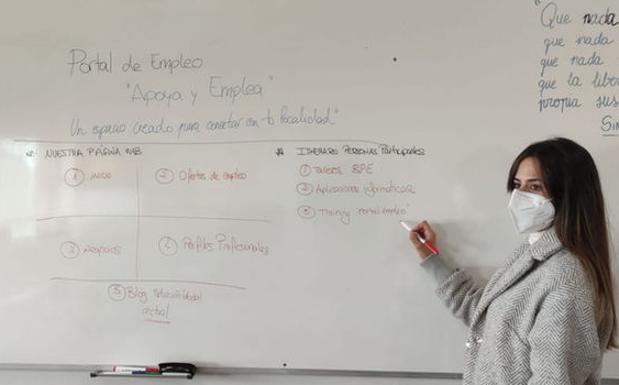 Portal de Empleo
"Apoya y Emplea"
Un espacio creado para conectar con tu localidad"
NUESTRA PÁGINA WEB
① INICIO
② Ofertas de empleo
③ Negocios
④ Perfiles Profesionales
⑤ Blog
ITINERARIO PERSONAS Participantes
① Talleres BPE
② Aplicaciones informáticas
③ portal empleo"
"Que nada
que nada
que nada
que la liber
propia sus
Sim